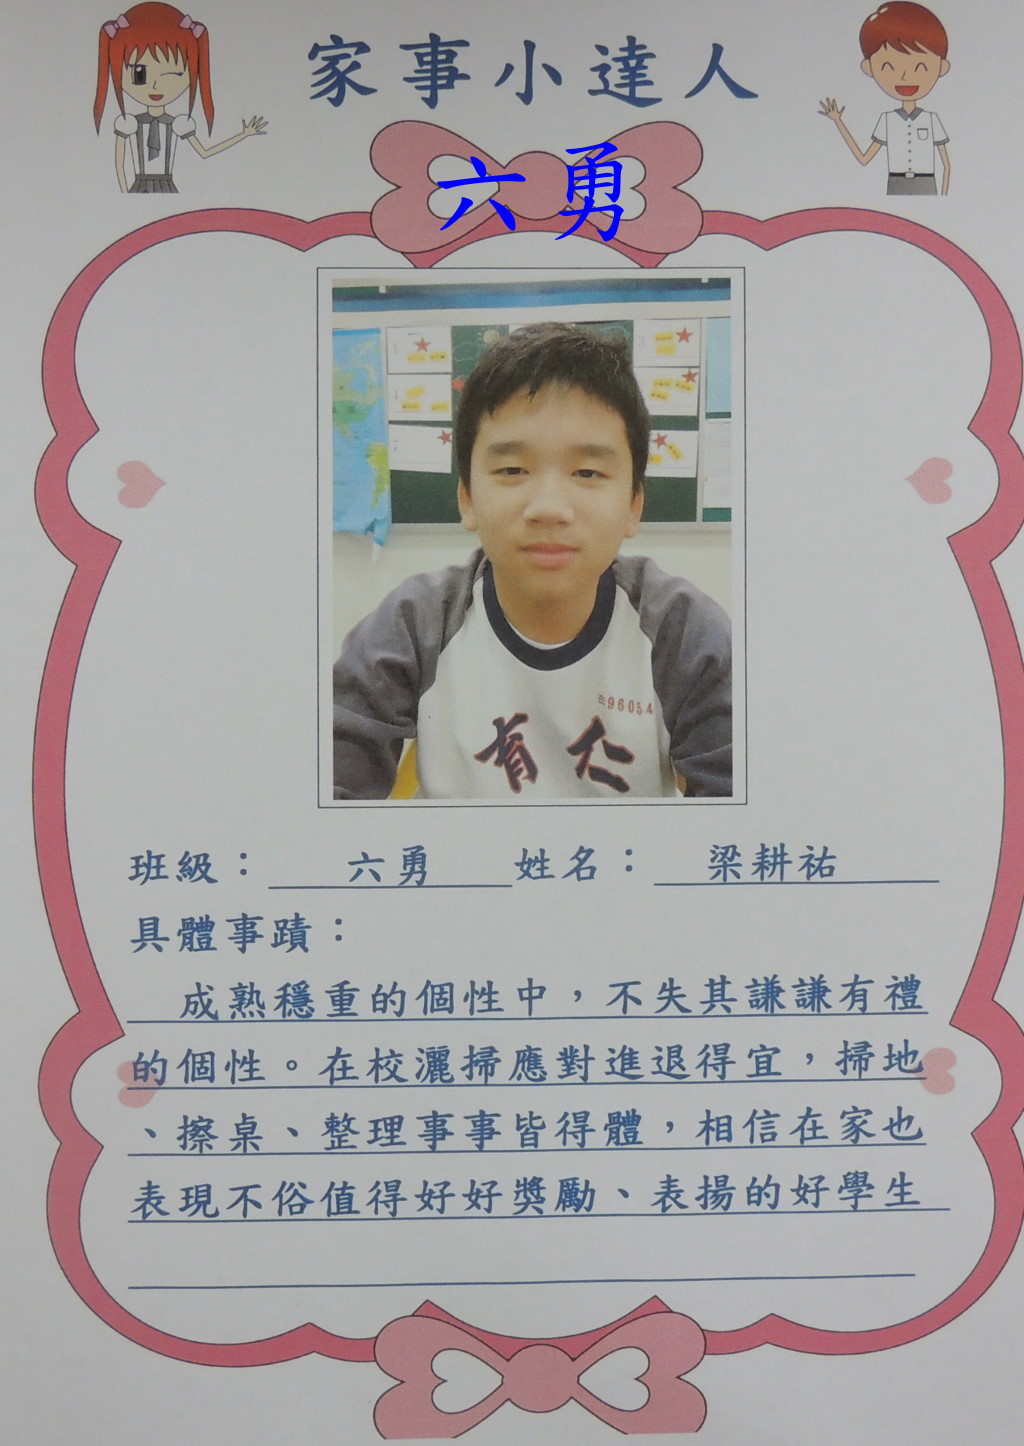 家事小達人
六勇
96054
有仁
班級：六勇 姓名：梁耕祐
具體事蹟：
成熟穩重的個性中，不失其謙謙有禮
的個性。在校灑掃應對進退得宜，掃地
、擦桌、整理事事皆得體，相信在家也
表現不俗值得好好獎勵、表揚的好學生